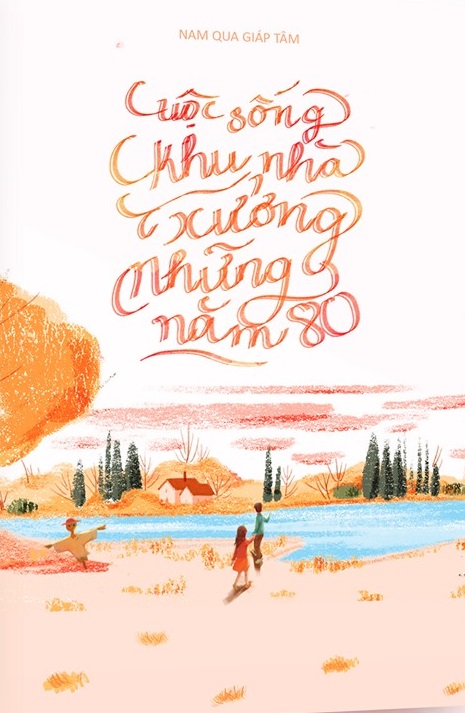 NAM QUA GIÁP TÂM
Cuộc sống
khu nhà
xưởng
những
năm 80